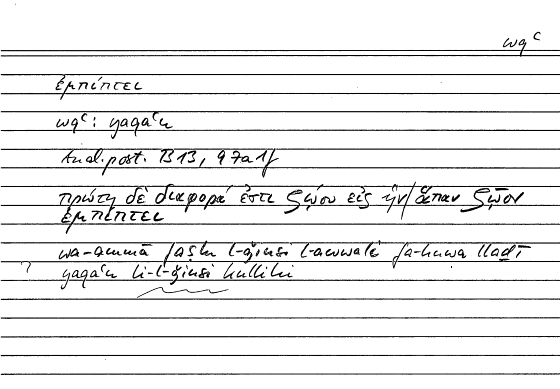 wqᶜ
ἐμπίπτει
wqᶜ: yaqaᶜu
Anal. post. B 13, 97a1f
πρώτη δὲ διαφορά ἐστι ζῴου εἰς ἣν/ἅπαν ζῷον
ἐμπίπτει
wa-ammā faṣlu l-ǧinsi l-awwali fa-huwa lladī
? yaqaᶜu li-l-ǧinsi kullihi